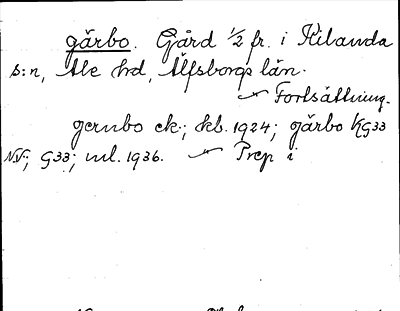 gärbo. Gård 1/2 fr. i Kilanda
s:n, Ale hd, Älfsborgs län.
Fortsättning.
gernbo ek.; kb. 1924; gärbo KG33
NV; G33; ul. 1936. Prep i